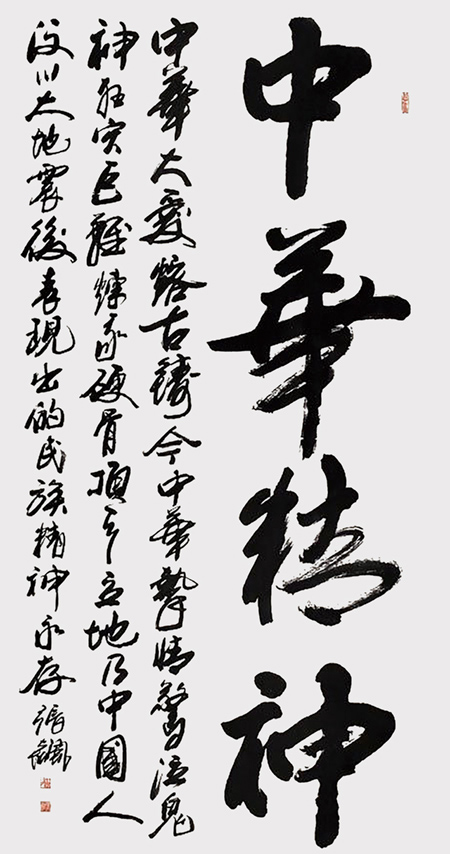 中華精神
中華大愛熔古鑄今中華摯情驚泣鬼
神狂灾巨難煉我硬骨頂天立地乃中國人
汶川大地震後表現出的民族精神永存張